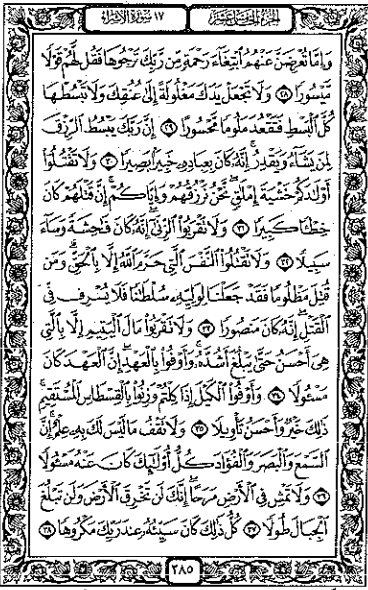 الجزء الخامس عشر
١٧ سورة الإسراء
وَإِمَّا تُعْرِضَنَّ عَنْهُمُ ٱبْتِغَآءَ رَحْمَةٍ مِّن رَّبِّكَ تَرْجُوهَا فَقُل لَّهُمْ قَوْلًا
مَّيْسُورًا ٢٨ وَلَا تَجْعَلْ يَدَكَ مَغْلُولَةً إِلَىٰ عُنُقِكَ وَلَا تَبْسُطْهَا
كُلَّ ٱلْبَسْطِ فَتَقْعُدَ مَلُومًا مَّحْسُورًا ٢٩ إِنَّ رَبَّكَ يَبْسُطُ ٱلرِّزْقَ
لِمَن يَشَآءُ وَيَقْدِرُ إِنَّهُۥ كَانَ بِعِبَادِهِۦ خَبِيرًۢا بَصِيرًا ٣٠ وَلَا تَقْتُلُوٓا۟
أَوْلَٰدَكُمْ خَشْيَةَ إِمْلَٰقٍ نَّحْنُ نَرْزُقُهُمْ وَإِيَّاكُمْ إِنَّ قَتْلَهُمْ كَانَ
خِطْـًٔا كَبِيرًا ٣١ وَلَا تَقْرَبُوا۟ ٱلزِّنَىٰٓ إِنَّهُۥ كَانَ فَٰحِشَةً وَسَآءَ
سَبِيلًا ٣٢ وَلَا تَقْتُلُوا۟ ٱلنَّفْسَ ٱلَّتِى حَرَّمَ ٱللَّهُ إِلَّا بِٱلْحَقِّ وَمَن
قُتِلَ مَظْلُومًا فَقَدْ جَعَلْنَا لِوَلِيِّهِۦ سُلْطَٰنًا فَلَا يُسْرِف فِّى
ٱلْقَتْلِ إِنَّهُۥ كَانَ مَنصُورًا ٣٣ وَلَا تَقْرَبُوا۟ مَالَ ٱلْيَتِيمِ إِلَّا بِٱلَّتِى
هِىَ أَحْسَنُ حَتَّىٰ يَبْلُغَ أَشُدَّهُۥ وَأَوْفُوا۟ بِٱلْعَهْدِ إِنَّ ٱلْعَهْدَ كَانَ
مَسْـُٔولًا ٣٤ وَأَوْفُوا۟ ٱلْكَيْلَ إِذَا كِلْتُمْ وَزِنُوا۟ بِٱلْقِسْطَاسِ ٱلْمُسْتَقِيمِ
ذَٰلِكَ خَيْرٌ وَأَحْسَنُ تَأْوِيلًا ٣٥ وَلَا تَقْفُ مَا لَيْسَ لَكَ بِهِۦ عِلْمٌ إِنَّ
ٱلسَّمْعَ وَٱلْبَصَرَ وَٱلْفُؤَادَ كُلُّ أُو۟لَٰٓئِكَ كَانَ عَنْهُ مَسْـُٔولًا
٣٦ وَلَا تَمْشِ فِى ٱلْأَرْضِ مَرَحًا إِنَّكَ لَن تَخْرِقَ ٱلْأَرْضَ وَلَن تَبْلُغَ
ٱلْجِبَالَ طُولًا ٣٧ كُلُّ ذَٰلِكَ كَانَ سَيِّئُهُۥ عِندَ رَبِّكَ مَكْرُوهًا ٣٨
٢٨٥